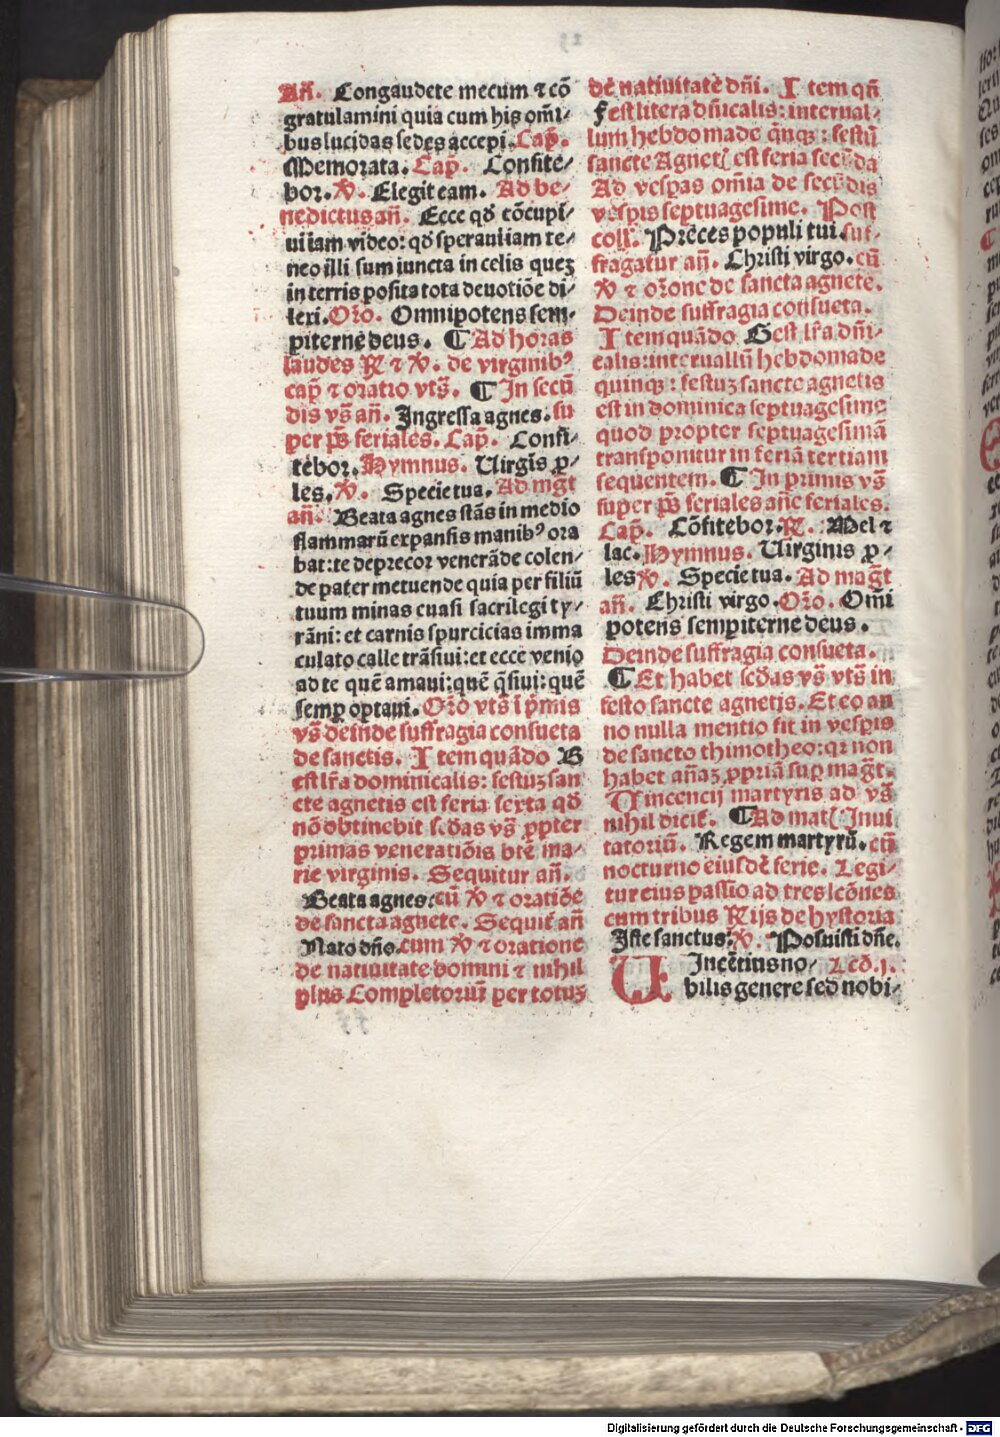 Añ. Congaudete mecum ⁊ cõ
gratulamini quia cum his om̃i-
bus lucidas sedes accepi. Cap̃.
Memorata. Cap̃. Confite-
bor. ꝟ. Elegit eam. Ad be-
nedictus añ. Ecce qd̕ cõcupi-
ui iam video: qd̕ speraui iam te-
neo illi sum iuncta in celis quez
in terris posita tota deuotiõe di-
lexi. Orõ. Omnipotens sem-
piterne deus. ¶ Ad horas
laudes ℟ ⁊ ꝟ. de virginibꝰ
cap̃ ⁊ oratio vts̃. ¶ In secũ
dis vs̃ añ. Ingressa agnes. su
per ps̃ feriales. Cap̃. Confi-
tebor. Hymnus. Uirgis̃ p-
les. ꝟ. Specie tua. Ad mg̃t
añ. Beata agnes stãs in medio
flammarũ expansis manibꝰ ora
bat: te deprecor venerãde colen-
de pater metuende quia per filiũ
tuum minas euasi sacrilegi ty-
rãni: et carnis spurcicias imma
culato calle trãsiui: et ecce venio
ad te quẽ amaui: quẽ q̃siui: quẽ
semꝑ optaui. Orõ vts̃ i p̃mis
vs̃ deinde suffragia consueta
de sanctis. Item quãdo B
est lr̃a dominicalis: festuz san
cte agnetis est feria sexta qd̕
nõ obtinebit scd̃as vs̃ ꝓpter
primas veneratiõis btẽ ma-
rie virginis. Sequitur añ.
Beata agnes. cũ ꝟ ⁊ oratiõe
de sancta agnete. Sequit̃ añ
Nato dño. cum ꝟ ⁊ oratione
de natiuitate domini ⁊ nihil
plus Completoriũ per totuz
de natiuitate dñi. Item qñ
F est litera dñicalis: interual-
lum hebdomade qinqz: festũ
sancte Agnetꝭ est feria secũda
Ad vesꝑas om̃ia de secũdis
vesꝑis septuagesime. Post
coll̃. Preces populi tui. suf-
fragatur añ. Christi virgo. cũ
ꝟ ⁊ orõne de sancta agnete.
Deinde suffragia consueta.
Item quãdo G est lr̃a dñi-
calis: interuallũ hebdomade
quinqz: festuz sancte agnetis
est in dominica septuagesime
quod propter septuagesimã
transponitur in feriã tertiam
sequentem. ¶ In primis vs̃
super ps̃ feriales añe feriales.
Cap̃. Cõfitebor. ℟. Mel ⁊
lac. Hymnus. Uirginis p-
les ꝟ. Specie tua. Ad mag̃t
añ. Christi virgo. Orõ. Om̃i
potens sempiterne deus.
Deinde suffragia consueta.
¶ Et habet scd̃as vs̃ vts̃ in
festo sancte agnetis. Et eo an
no nulla mentio fit in vesꝑis
de sancto thimotheo: qz non
habet añaz ꝓpriã suꝑ mag̃t.
Uincencij martyris ad vs̃
nihil dicit̃. ¶ Ad matꝭ Inui
tatoriũ. Regem martyrũ. cũ
nocturno eiusdẽ ferie. Legi-
tur eius passio ad tres lcõnes
cum tribus ℟ijs de hystoria
Iste sanctus. ꝟ. Posuisti dñe.
UIncẽtius no- Lcõ. j.
bilis genere sed nobi-
Digitalisierung gefördert durch die Deutsche Forschungsgemeinschaft - DFG